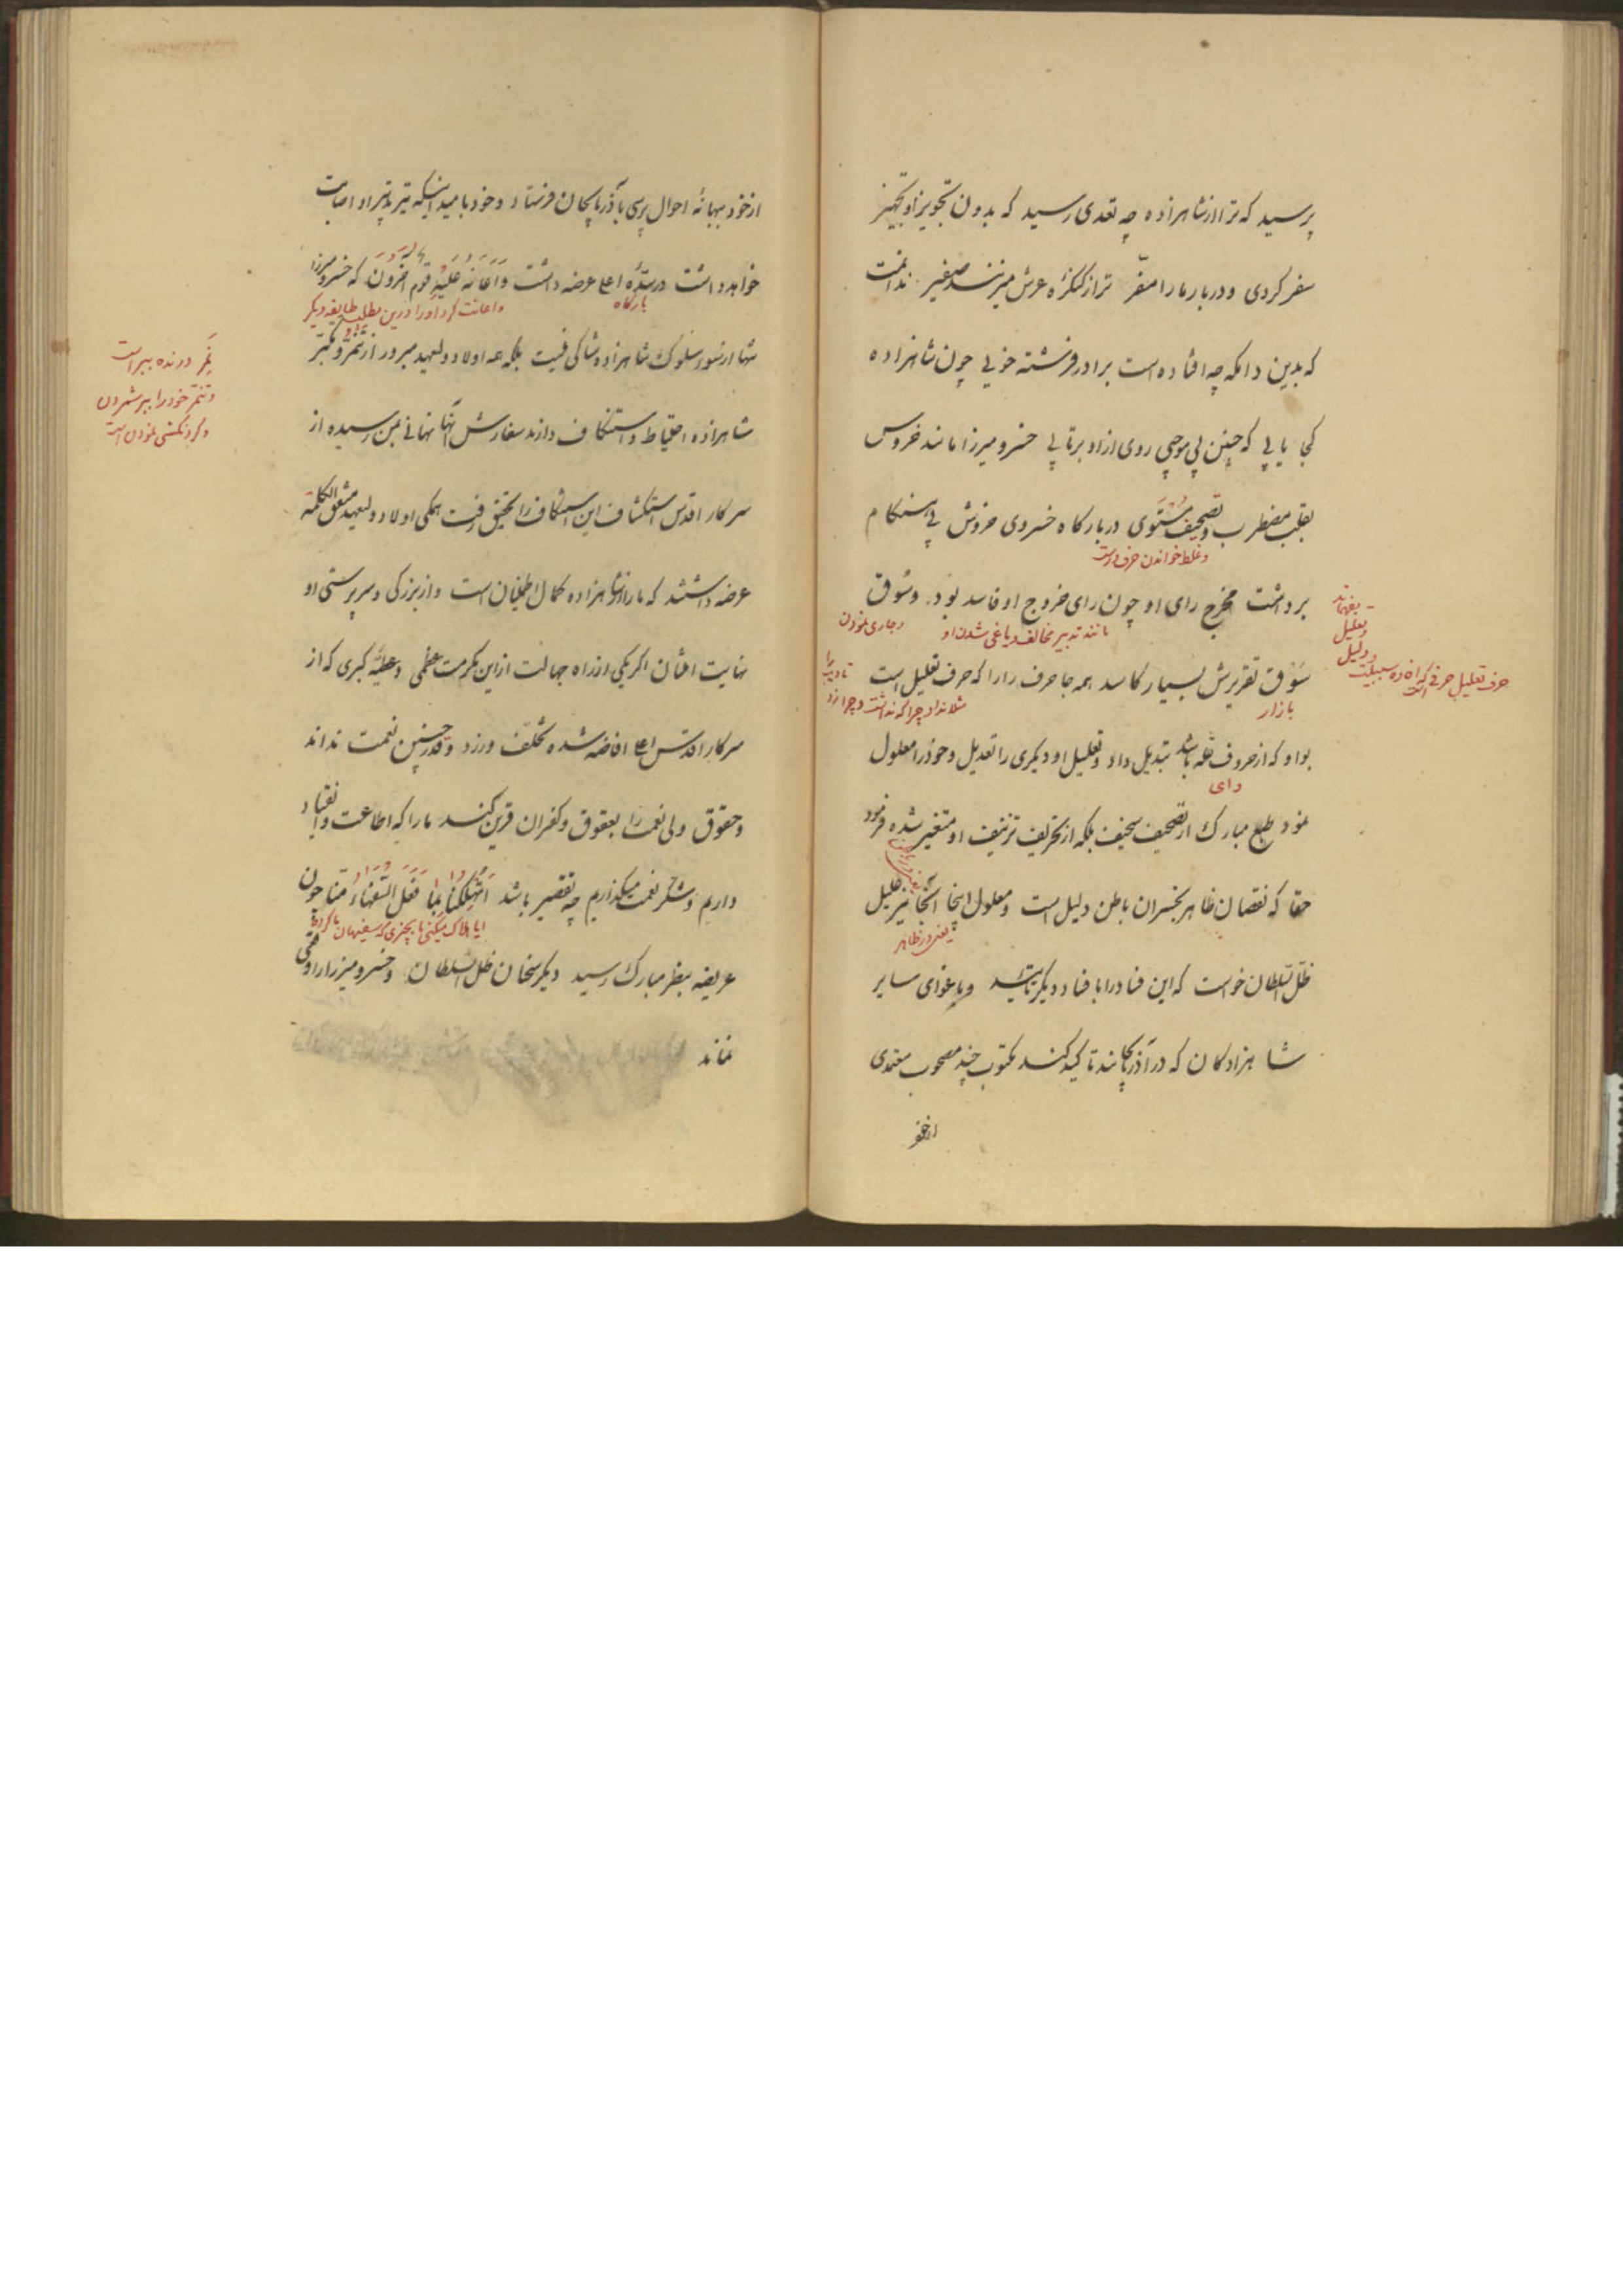 پرسید که ترا از شاهزاده چه تعدی رسید که بدون تجویز او تجهیز
سفر کردی و دربار ما را مفرّ ترا ز کنگرهٔ عرش میزنند صفیر ندانمت
که بدین دامگه چه افتاده است برادر فرشته خویی چون شاهزاده
کجا یابی که چنین بی موجبی روی از او برتابی خسرو میرزا مانند خروس
بقلب مضطرب و تصحیف مستوی دربارگاه خسروی خروش بی هنگام
و غلط خواندن حرف راست
برداشت مخرج رای او چون رای خروج او فاسد بود و سُوق
مانند تدبیر مخالف و یاغی شدن او
و جاری نمودن
سَوق تقریرش بسیار کاسد همه جا حرف را را که حرف تعلیل است
بازار
مثلا نداد چرا که نداشت و چرا زد
تادیب را
حرف تعلیل حرفی که افاده سببیت
و دلیل
تعلیل
بفهماند
بواو که از حروف علّه باشد تبدیل داد و تعلیل او دیگری را تعدیل و خود را معلول
وای
نمود طبع مبارک از تصحیف سخیف بلکه از تحریف تزئیف او متغیر شده فرمود
حقا که نقصان ظاهر بخسران باطن دلیل است و معلول اینجا آنجا نیز علیل
یعنی در ظاهر
ظلّ السّلطان خواست که این فساد را با فساد دیگر تأیید و باغوای سایر
شاهزادگان که در آذربایجانند تاکید کند مکتوب چند مصحوب معتمدی
از خو
از خود ببهانهٔ احوال پرسی بآذربایجان فرستاد و خود بامید اینکه تیر تدبیر او اصابت
خواهد داشت درسدّهٔ اعلی عرضه داشت وَاَعَانَهُ عَلَیْهِ قَومٌ آخَرُونَ که خسرو میرزا
بارگاه
و اعانت کرد او را درین مطلب طایفه دیگر
تنها از سوء سلوک شاهزاده شاکی نیست بلکه همه اولاد ولیعهد مبرور از تنمّر و تکبّر
نَمِر درنده ببر است
و تنمّر خود را ببر شمردن
و گردنکشی نمودن است
شاهزاده احتیاط و استنکاف دارند سفارش آنها نهانی بمن رسیده از
سرکار اقدس استکشاف این استنکاف را تحقیق رفت همگی اولاد ولیعهد متفق الکلمة
عرضه داشتند که ما را از شاهزاده کمال اطمینان است و از بزرگی و سرپرستی او
نهایت امتنان اگر یکی از راه جهالت از این مکرمت عظمی و عطیّه کبری که از
سرکار اقدس اعلی افاضه شده تخلّف ورزد و قدر چنین نعمت نداند
و حقوق ولی نعمت را بعقوق و کفران قرین کند ما را که اطاعت و انقیاد
داریم و شکر نعمت میگذاریم چه تقصیر باشد اَتُهْلِکُنَا بِمَا فَعَلَ السُّفَهَاءُ مِنَّا چون
ایا هلاک میکنی ما را بچیزی که سفیهان ما کردند
عریضه بنظر مبارک رسید دیگر سخنان ظل السّلطان و خسرو میرزا را وقعی
نماند